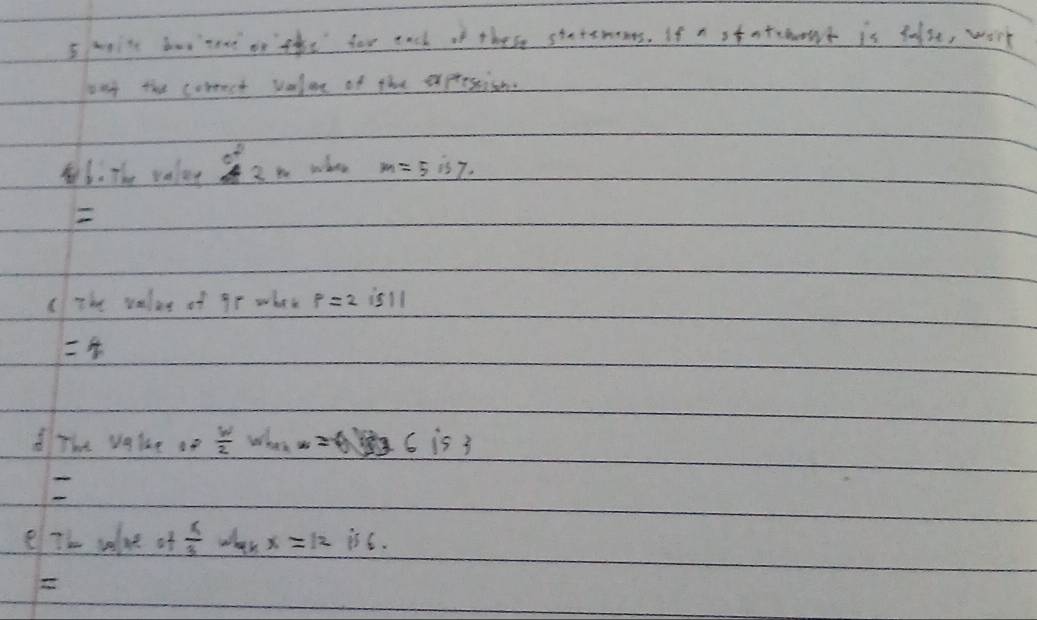 5 write for each of these statements. If a statement is false, work
out the correct value of the expression.
b. The value of 2 m when m = 5 is 7.
=
c The value of 9P when P = 2 is 11
=
d The value of w/2 when w = 6 is 3
=
e The value of x/3 when x = 12 is 6.
=